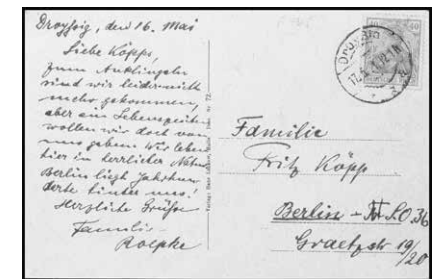 Droyßig, den 16. Mai
Liebe Köpps!
zum Anklingeln
sind wir leider nicht
mehr gekommen,
aber ein Lebenszeichen
wollen wir doch von
uns geben. Wir leben
hier in herrlicher Natur
Berlin liegt Jahrhun-
derte hinter uns!
Herzliche Grüße
Familie
Roepke
Familie
Fritz Köpp
Berlin - S.O. 36
Graetzstr 19/
20